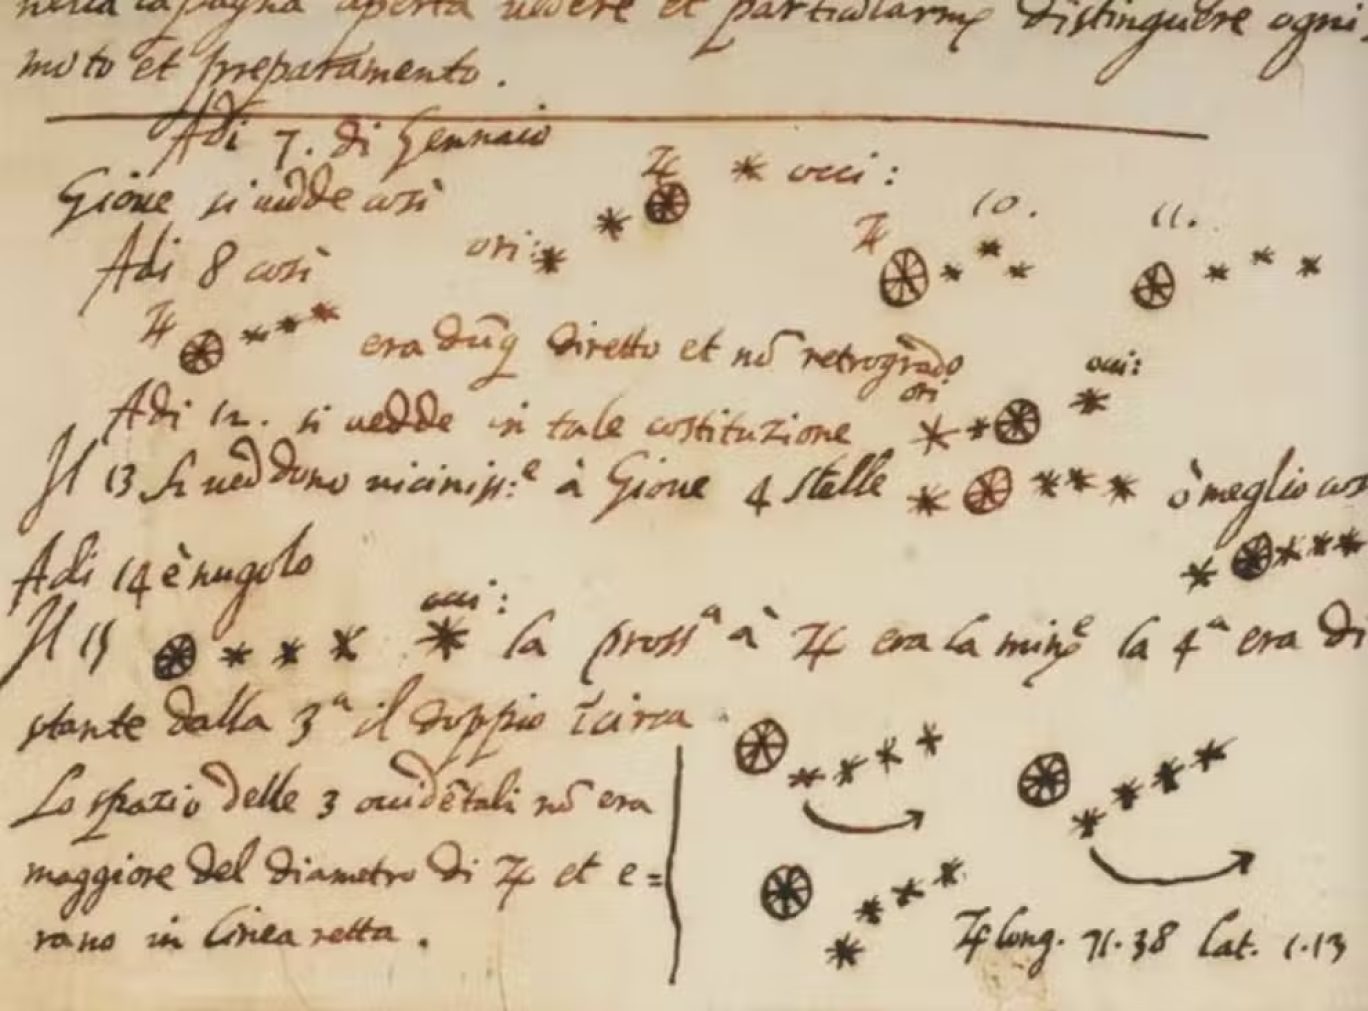 nella campagna aperta vedere et particularmte distinguere ogni
moto et preparamento.
Adi 7. di Gennaio
Gioue si uedde così
ori: ♃ occi:
Adi 8 così
♃
♃ 10. 11.
era dũq diretto et nõ retrogrado
Adi 12. si uedde in tale costituzione
ori occi:
Il 13 si ueddono uicinissi:e à Gioue 4 stelle ò meglio cosi
Adi 14 è nugolo
Il 15 occi: la prossa à ♃ era la mine la 4a era di
stante dalla 3a il doppio ĩcirca
Lo spazio delle 3 occidẽtali nõ era
maggiore del diametro di ♃ et e=
rano in linea retta.
♃ long. 71.38 lat. 1.13